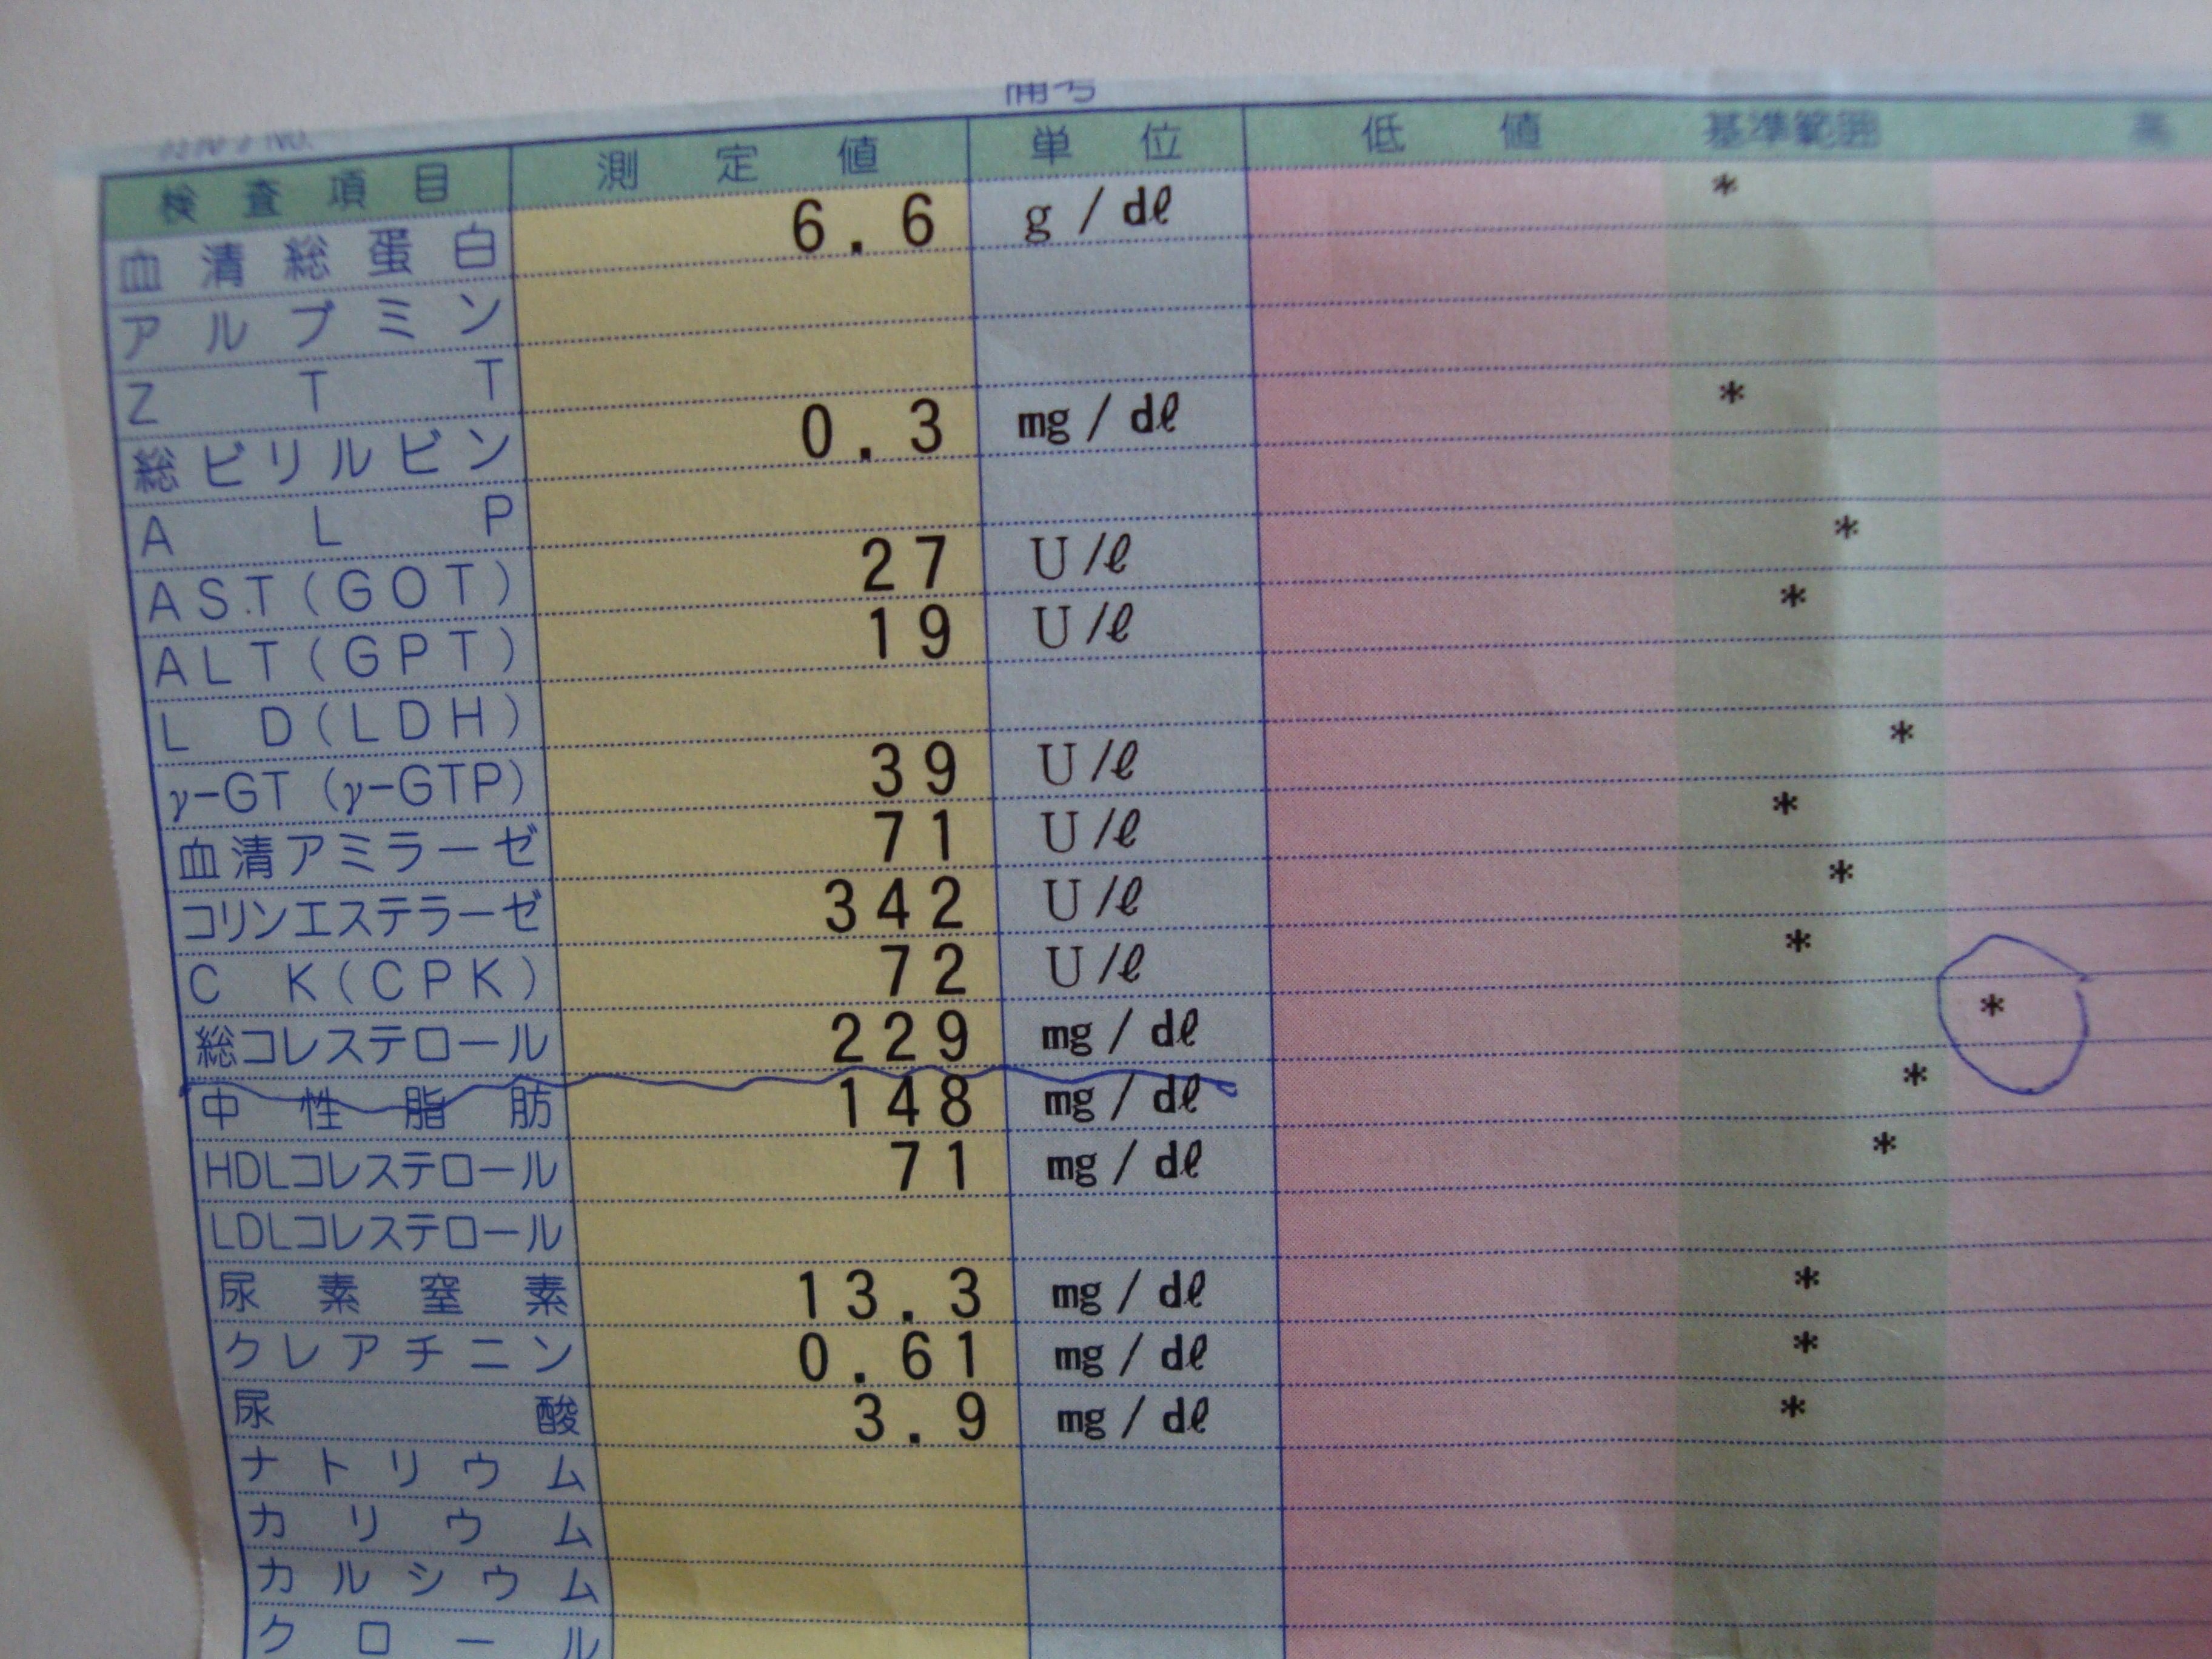 備考
検査項目 測定値 単位 低値 基準範囲 高
血清総蛋白 6.6 g/dℓ *
アルブミン
ZTT
総ビリルビン 0.3 mg/dℓ *
ALP
AST(GOT) 27 U/ℓ *
ALT(GPT) 19 U/ℓ *
LD(LDH)
γ-GT(γ-GTP) 39 U/ℓ *
血清アミラーゼ 71 U/ℓ *
コリンエステラーゼ 342 U/ℓ *
CK(CPK) 72 U/ℓ *
総コレステロール 229 mg/dℓ *
中性脂肪 148 mg/dℓ *
HDLコレステロール 71 mg/dℓ *
LDLコレステロール
尿素窒素 13.3 mg/dℓ *
クレアチニン 0.61 mg/dℓ *
尿酸 3.9 mg/dℓ *
ナトリウム
カリウム
カルシウム
クロール